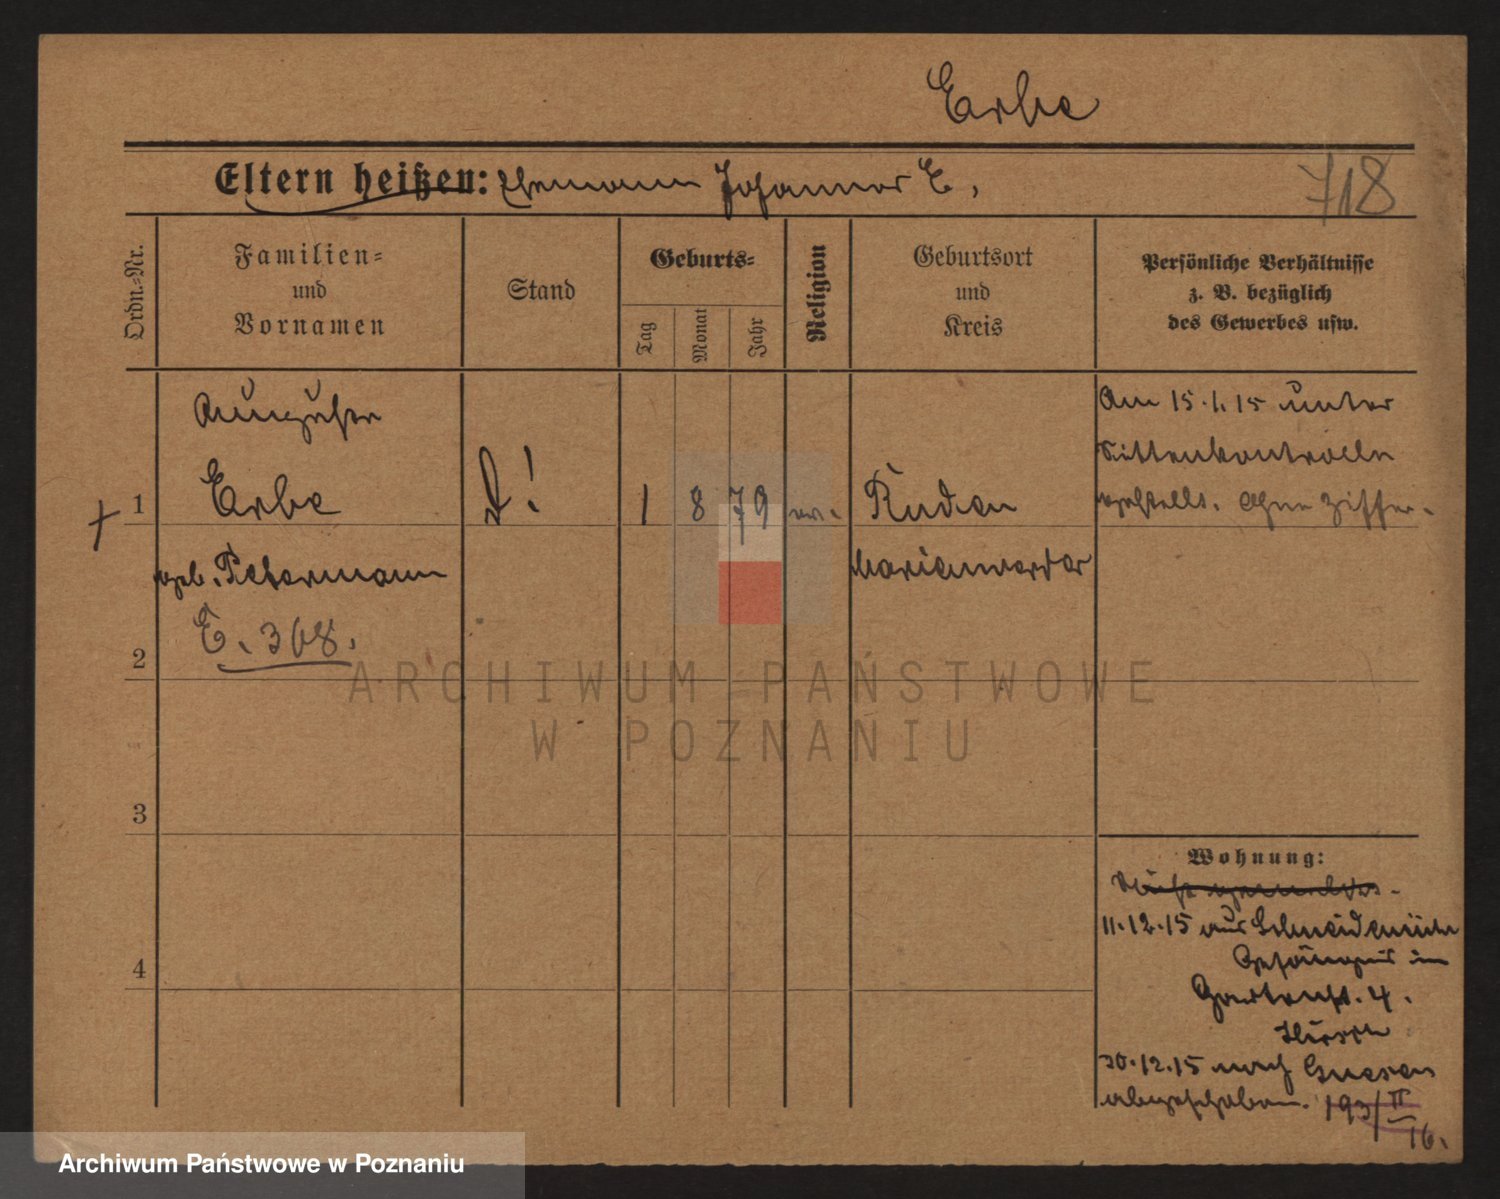 Erbe
Eltern heißen: Ehemann Johannes E.
718
Ordn.-Nr.
Familien-
und
Vornamen
Stand
Geburts-
Tag
Monat
Jahr
Religion
Geburtsort
und
Kreis
Persönliche Verhältnisse
z. B. bezüglich
des Gewerbes usw.
1
Auguste
Erbe
geb. Petermann
E. 368.
D!
1 8 79
ev.
Ruden
Marienwerder
Am 15.1.15 unter
Sittenkontrolle
gestellt. Ohne Ziffer.
2
3
4
Wohnung:
Nicht gemeldet.
11.12.15 aus Schneidemühl
Gefängnis in
Gartenst. 4.
30.12.15 nach Gnesen
abgeschoben. 193/II
16.
ARCHIWUM PAŃSTWOWE
W POZNANIU
Archiwum Państwowe w Poznaniu